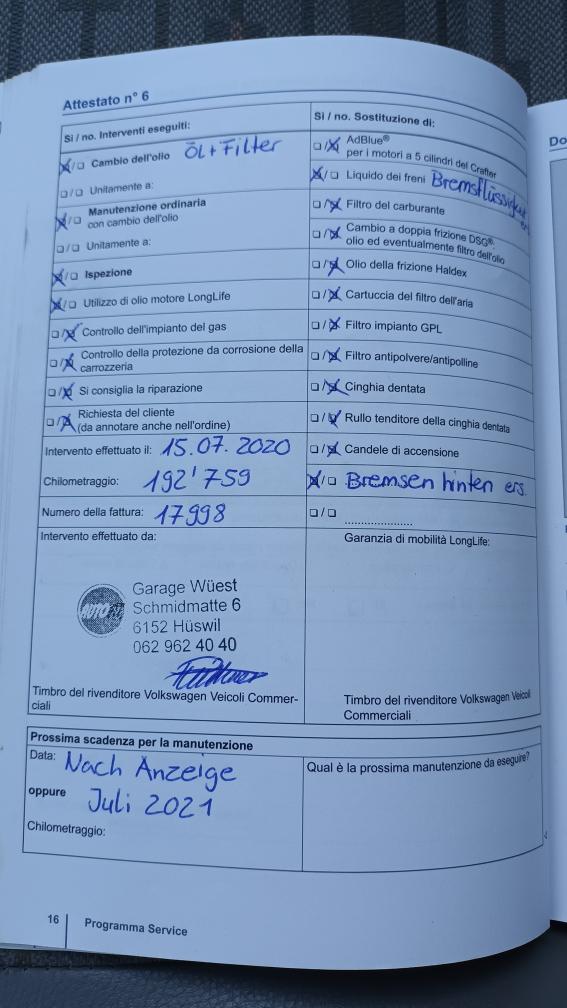 Attestato n° 6
Si / no. Interventi eseguiti:
Cambio dell'olio ÖL + Filter
Unitamente a:
Manutenzione ordinaria
con cambio dell'olio
Unitamente a:
Ispezione
Utilizzo di olio motore LongLife
Controllo dell'impianto del gas
Controllo della protezione da corrosione della
carrozzeria
Si consiglia la riparazione
Richiesta del cliente
(da annotare anche nell'ordine)
Intervento effettuato il: 15.07.2020
Chilometraggio: 192'759
Numero della fattura: 17998
Intervento effettuato da:
Garage Wüest
Schmidmatte 6
6152 Hüswil
062 962 40 40
Timbro del rivenditore Volkswagen Veicoli Commer-
ciali
Si / no. Sostituzione di:
AdBlue®
per i motori a 5 cilindri del Crafter
Liquido dei freni Bremsflüssigkeit
Filtro del carburante
Cambio a doppia frizione DSG®:
olio ed eventualmente filtro dell'olio
Olio della frizione Haldex
Cartuccia del filtro dell'aria
Filtro impianto GPL
Filtro antipolvere/antipolline
Cinghia dentata
Rullo tenditore della cinghia dentata
Candele di accensione
Bremsen hinten ers.
Garanzia di mobilità LongLife:
Timbro del rivenditore Volkswagen Veicoli
Commerciali
Prossima scadenza per la manutenzione
Data: Nach Anzeige
oppure Juli 2021
Chilometraggio:
Qual è la prossima manutenzione da eseguire?
16 Programma Service
Do